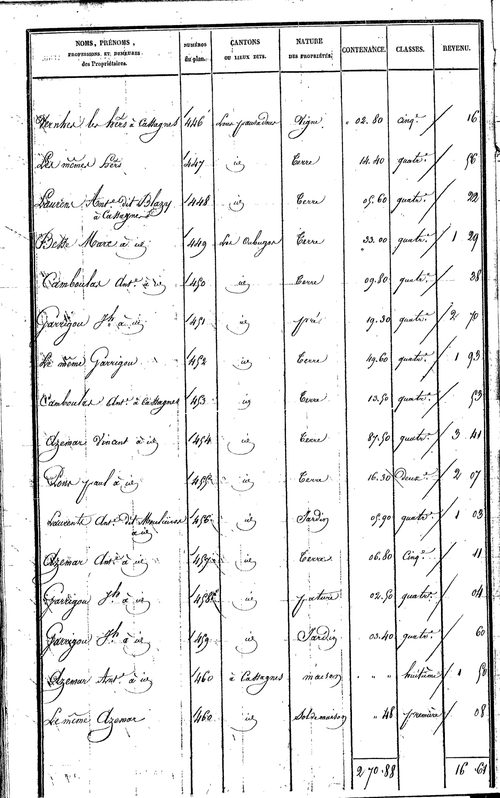 NOMS, PRÉNOMS, PROFESSIONS ET DEMEURES des Propriétaires. | NUMÉROS du plan. | CANTONS OU LIEUX DITS. | NATURE DES PROPRIÉTÉS. | CONTENANCE. | CLASSES. | REVENU.
les hérs à Cassagnes 446 Vigne " 02.80 cinq.e 16
Les mêmes hérs 447 id Terre 14.40 quatr.e 56
Laurens Ant.e dit Blazy 448 id Terre 05.60 quatr.e 22
à Cassagnes
Marc à id 449 Terre 33.00 quatr.e 1 29
Camboulas Ant.e à id 450 id Terre 09.80 quatr.e 38
Garrigou Jh à id 451 id pré 19.30 quatr.e 2 70
Le même Garrigou 452 id Terre 49.60 quatr.e 1 93
Camboulas Ant.e à Cassagnes 453 id Terre 13.50 quatr.e 53
Azemar Vincent à id 454 id Terre 87.50 quatr.e 3 41
Pons paul à id 455 id Terre 16.30 deux.e 2 07
Ant.e dit 456 id Jardin 05.90 quatr.e 1 03
à id
Azemar Ant.e à id 457 id Terre 06.80 Cinq.e 11
Garrigou Jh à id 458 id pature 02.50 quatr.e 04
Garrigou Jh à id 459 id Jardin 03.40 quatr.e 60
Azemar Ant.e à id 460 à Cassagnes maison " " huitième 1 50
Le même Azemar 460 id Sol de maison " 48 première 08
2 70.88 16 61